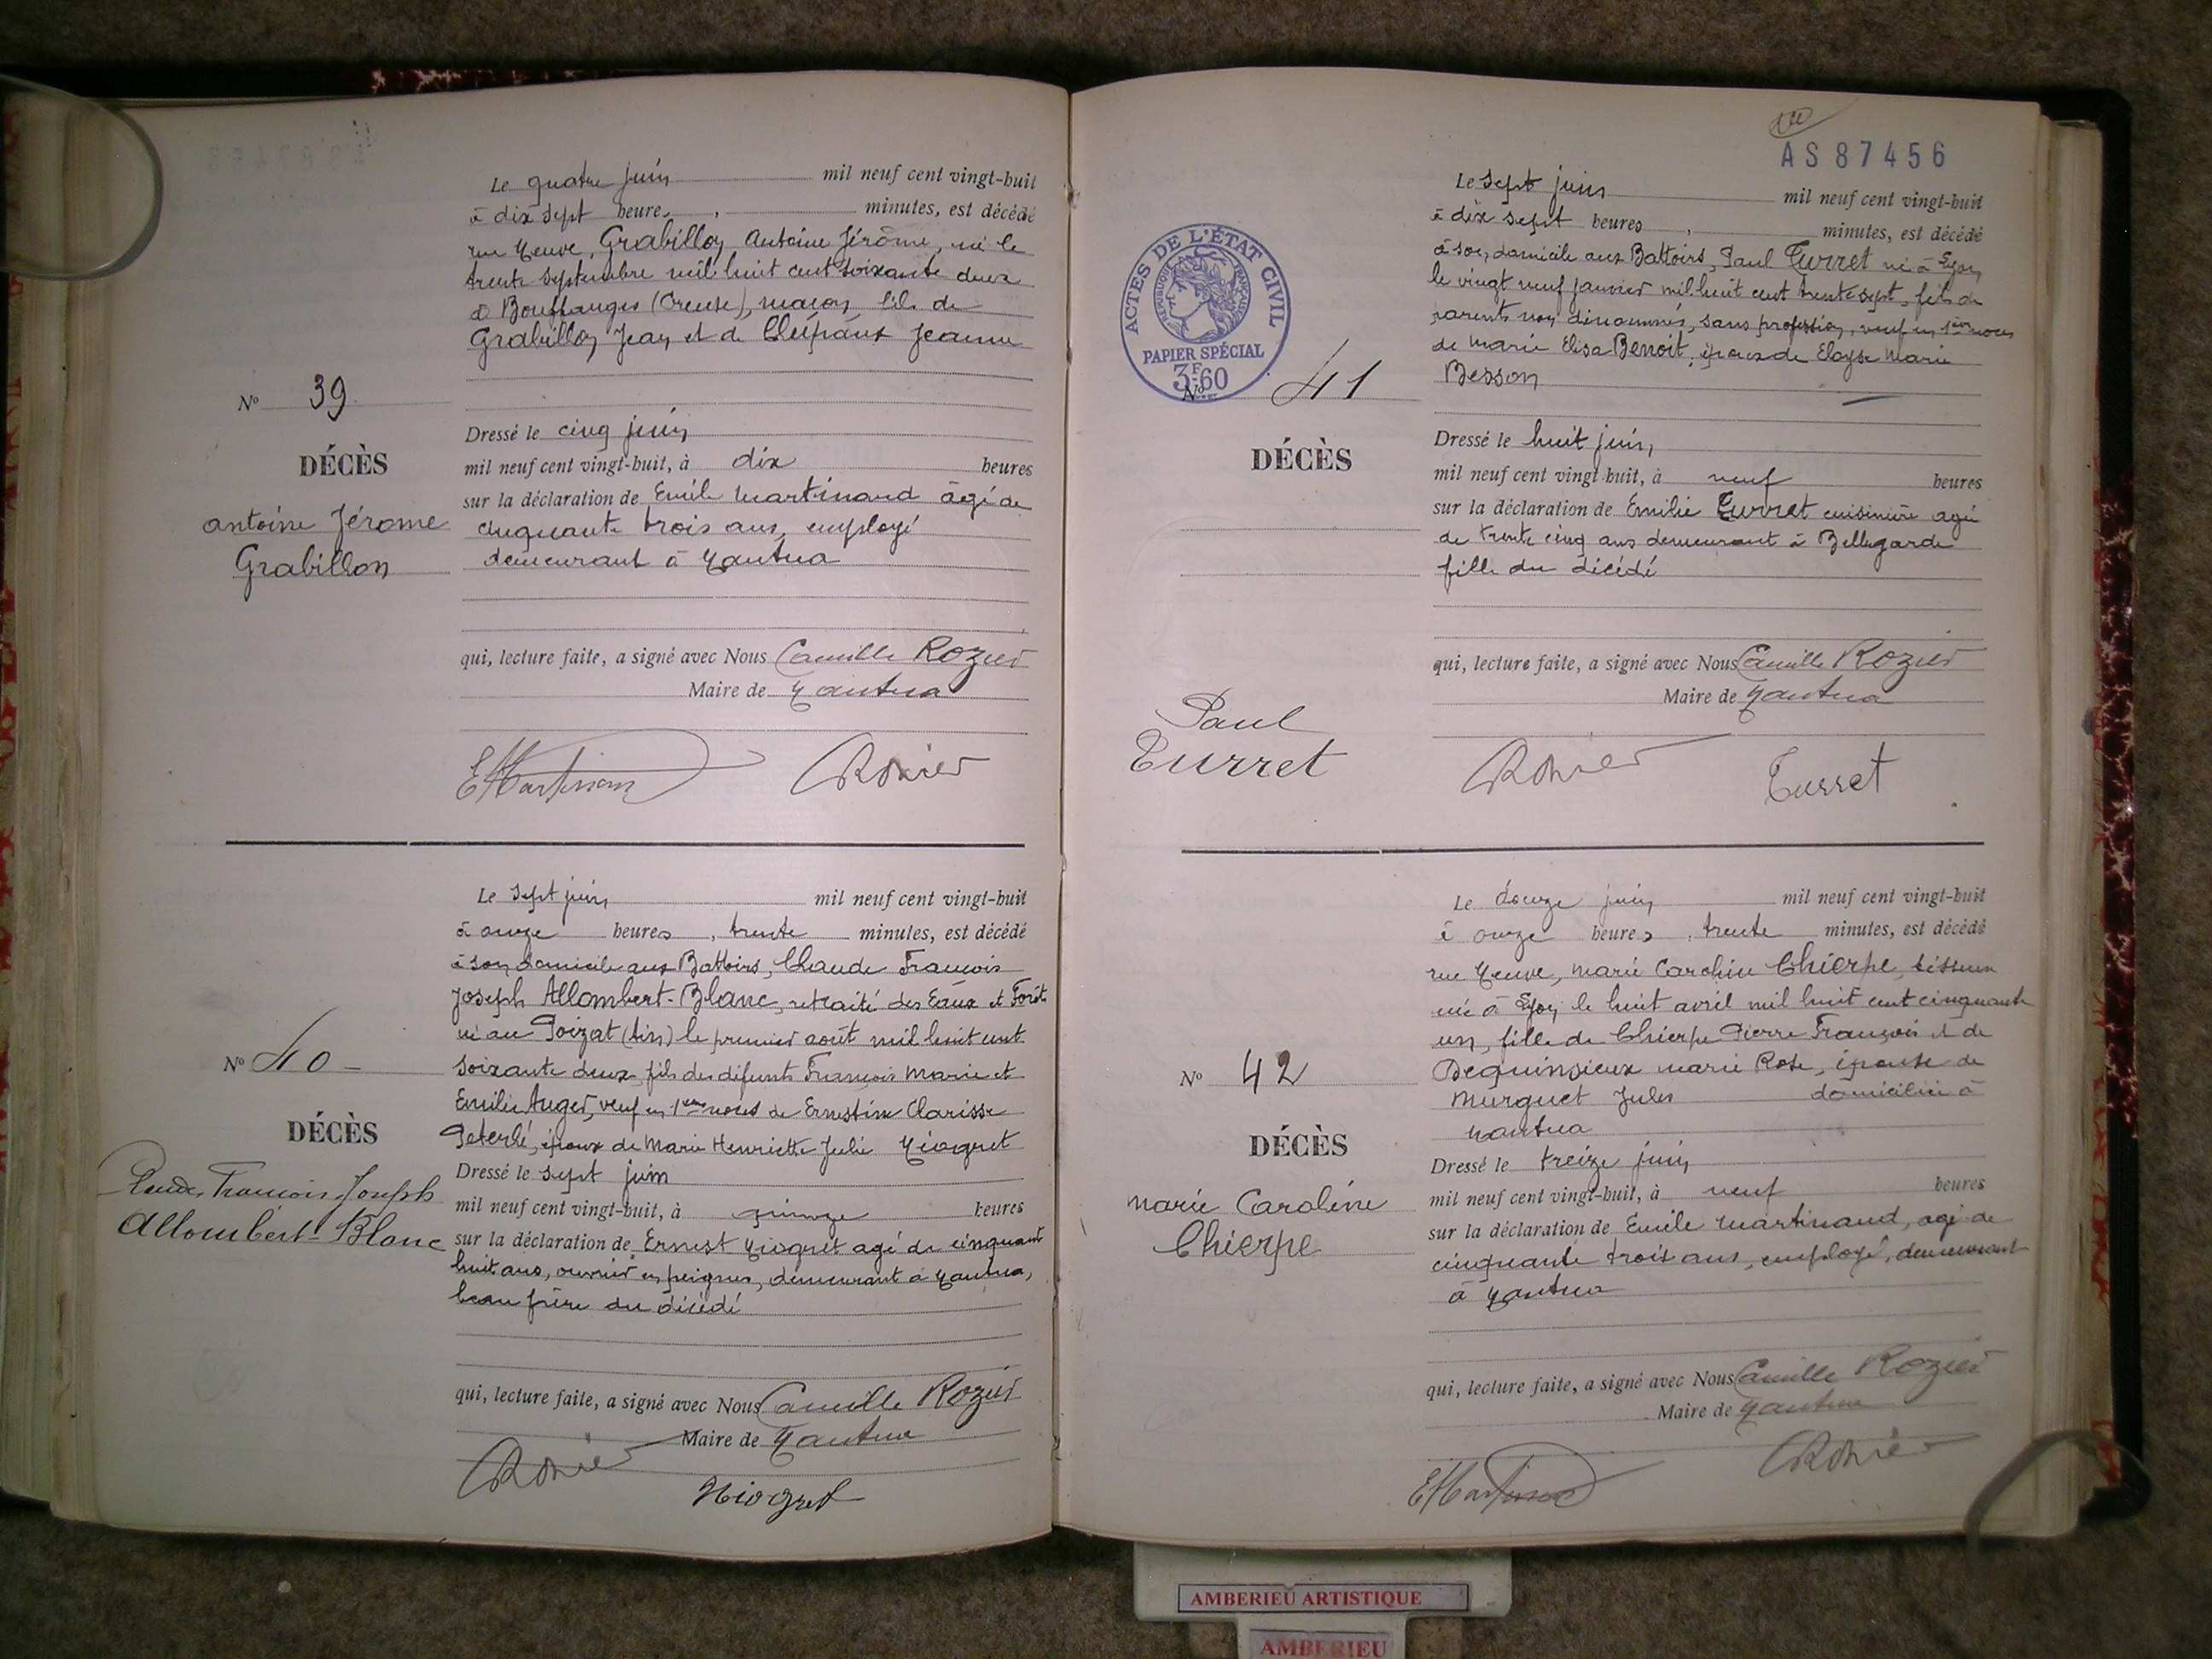 Le quatre juin mil neuf cent vingt-huit
à dix sept heures, minutes, est décédé
rue Neuve, Grabillon Antoine Jérôme, né le
trente septembre mil huit cent soixante deux
à (Creuse), maçon fils de
Grabillon Jean et de Jeanne
N° 39
DÉCÈS
Antoine Jérome
Grabillon
Dressé le cinq juin
mil neuf cent vingt-huit, à dix heures
sur la déclaration de Emile Martinand âgé de
cinquante trois ans, employé
demeurant à Nantua
qui, lecture faite, a signé avec Nous Camille Rozier
Maire de Nantua
EMartinand CRozier
Le sept juin mil neuf cent vingt-huit
à onze heures, trente minutes, est décédé
à son domicile aux Battoirs, Claude François
Joseph Allombert-Blanc, retraité des Eaux et Forêts
né au Poizat (Ain) le premier août mil huit cent
soixante deux, fils des défunts François Marie et
Emilie Auger, veuf en 1ères noces de Ernestine Clarisse
époux de Marie Henriette Julie Niogret
N° 40
DÉCÈS
Claude François Joseph
Allombert-Blanc
Dressé le sept juin
mil neuf cent vingt-huit, à quinze heures
sur la déclaration de Ernest Niogret agé de cinquante
huit ans, ouvrier en peignes, demeurant à Nantua,
beau frère du décédé
qui, lecture faite, a signé avec Nous Camille Rozier
Maire de Nantua
CRozier Niogret
AS 87456
ACTES DE L'ÉTAT CIVIL
RÉPUBLIQUE FRANÇAISE
PAPIER SPÉCIAL
3F60
Le sept juin mil neuf cent vingt-huit
à dix sept heures, minutes, est décédé
à son domicile aux Battoirs, Paul Turret né à Lyon
le vingt neuf janvier mil huit cent trente sept, fils de
parents non dénommés, sans profession, veuf en 1ères noces
de Marie Elisa Benoit, époux de Eloyse Marie
Besson
N° 41
DÉCÈS
Dressé le huit juin,
mil neuf cent vingt-huit, à neuf heures
sur la déclaration de Emilie Turret cuisinière agée
de trente cinq ans demeurant à Bellegarde
fille du décédé
qui, lecture faite, a signé avec Nous Camille Rozier
Maire de Nantua
Paul
Turret
CRozier Turret
Le douze juin mil neuf cent vingt-huit
à onze heures, trente minutes, est décédé
rue Neuve, Marie Caroline Chierpe,
née à Lyon le huit avril mil huit cent cinquante
un, fille de Chierpe Pierre François et de
Dequinsieux Marie Rose, épouse de
Murguet Jules domiciliée à
Nantua
N° 42
DÉCÈS
Marie Caroline
Chierpe
Dressé le treize juin
mil neuf cent vingt-huit, à neuf heures
sur la déclaration de Emile Martinand, agé de
cinquante trois ans, employé, demeurant
à Nantua
qui, lecture faite, a signé avec Nous Camille Rozier
Maire de Nantua
EMartinand CRozier
AMBERIEU ARTISTIQUE
AMBERIEU